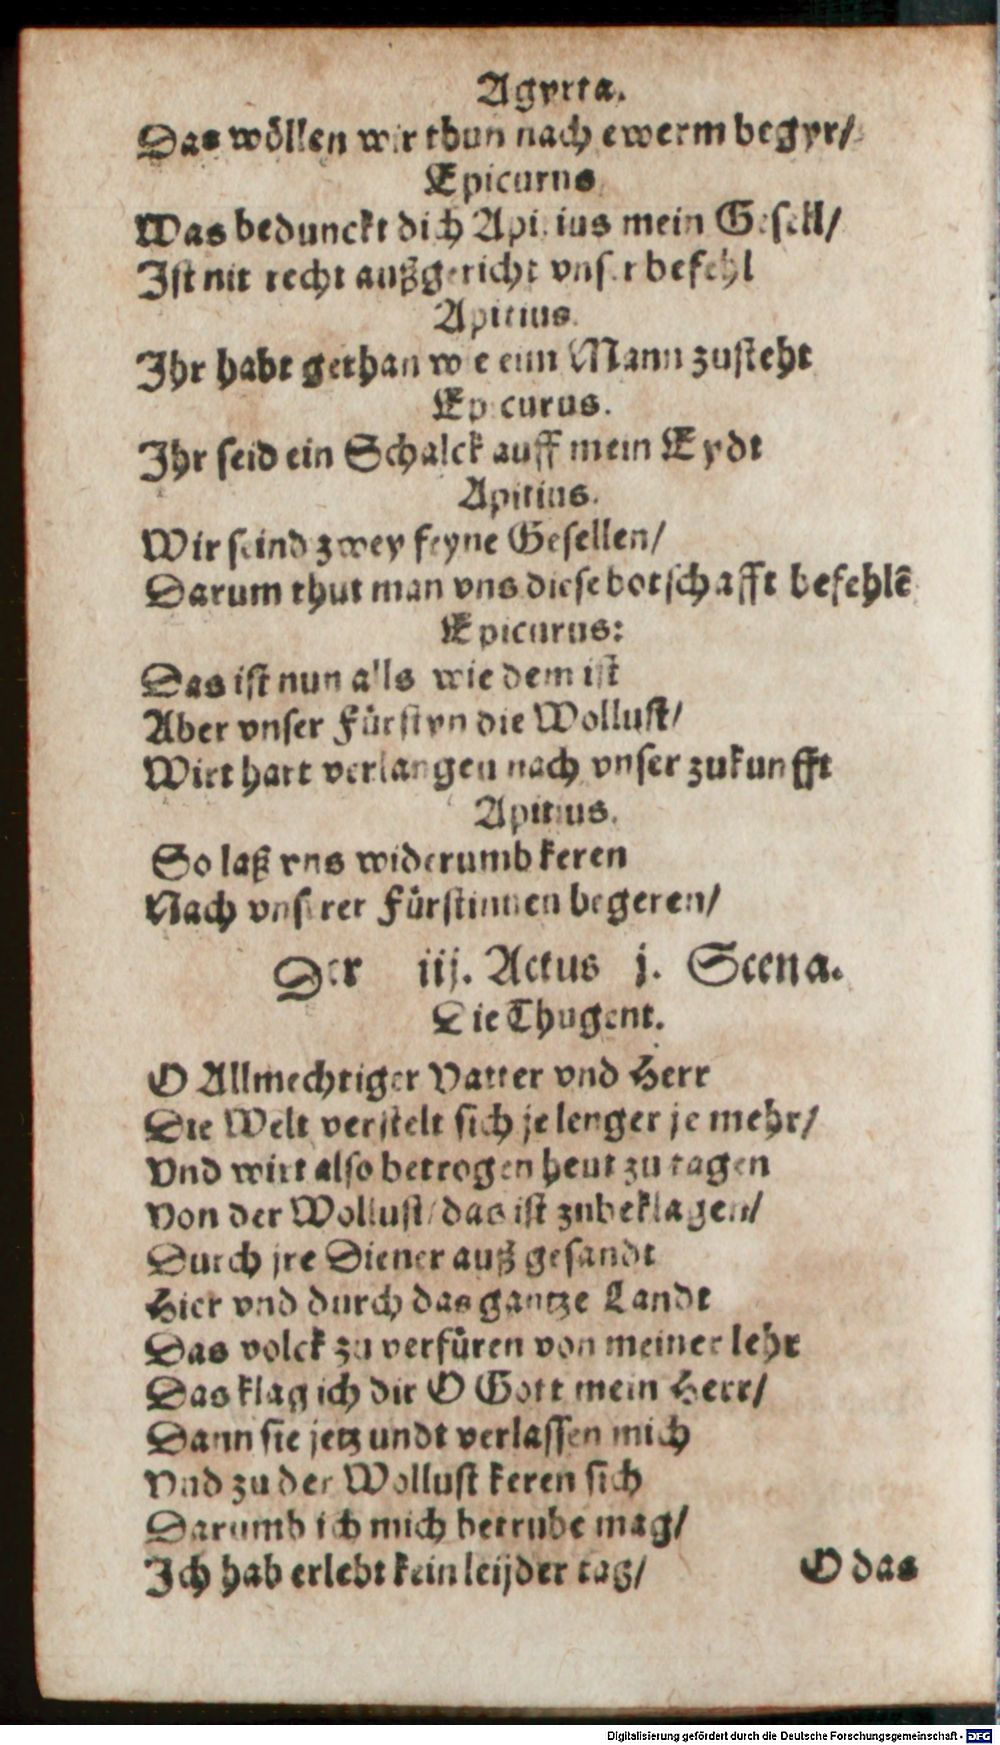 Agyrta.
Das wöllen wir thun nach ewerm begyr/
Epicurus
Was bedunckt dich Apitius mein Gesell/
Ist nit recht außgericht vnser befehl
Apitius.
Ihr habt gethan wie eim Mann zusteht
Epicurus.
Ihr seid ein Schalck auff mein Eydt
Apitius.
Wir seind zwey feyne Gesellen/
Darum thut man vns diese botschafft befehlē
Epicurus:
Das ist nun alls wie dem ist
Aber vnser Fürstyn die Wollust/
Wirt hart verlangen nach vnser zukunfft
Apitius.
So laß vns widerumb keren
Nach vnserer Fürstinnen begeren/
Der iij. Actus j. Scena.
Die Thugent.
O Allmechtiger Vatter vnd Herr
Die Welt verstelt sich je lenger je mehr/
Vnd wirt also betrogen heut zu tagen
Von der Wollust/das ist zubeklagen/
Durch jre Diener auß gesandt
Hier vnd durch das gantze Landt
Das volck zu verfüren von meiner lehr
Das klag ich dir O Gott mein Herr/
Dann sie jetzundt verlassen mich
Vnd zu der Wollust keren sich
Darumb ich mich betrube mag/
Ich hab erlebt kein leijder tag/
O das
Digitalisierung gefördert durch die Deutsche Forschungsgemeinschaft - DFG